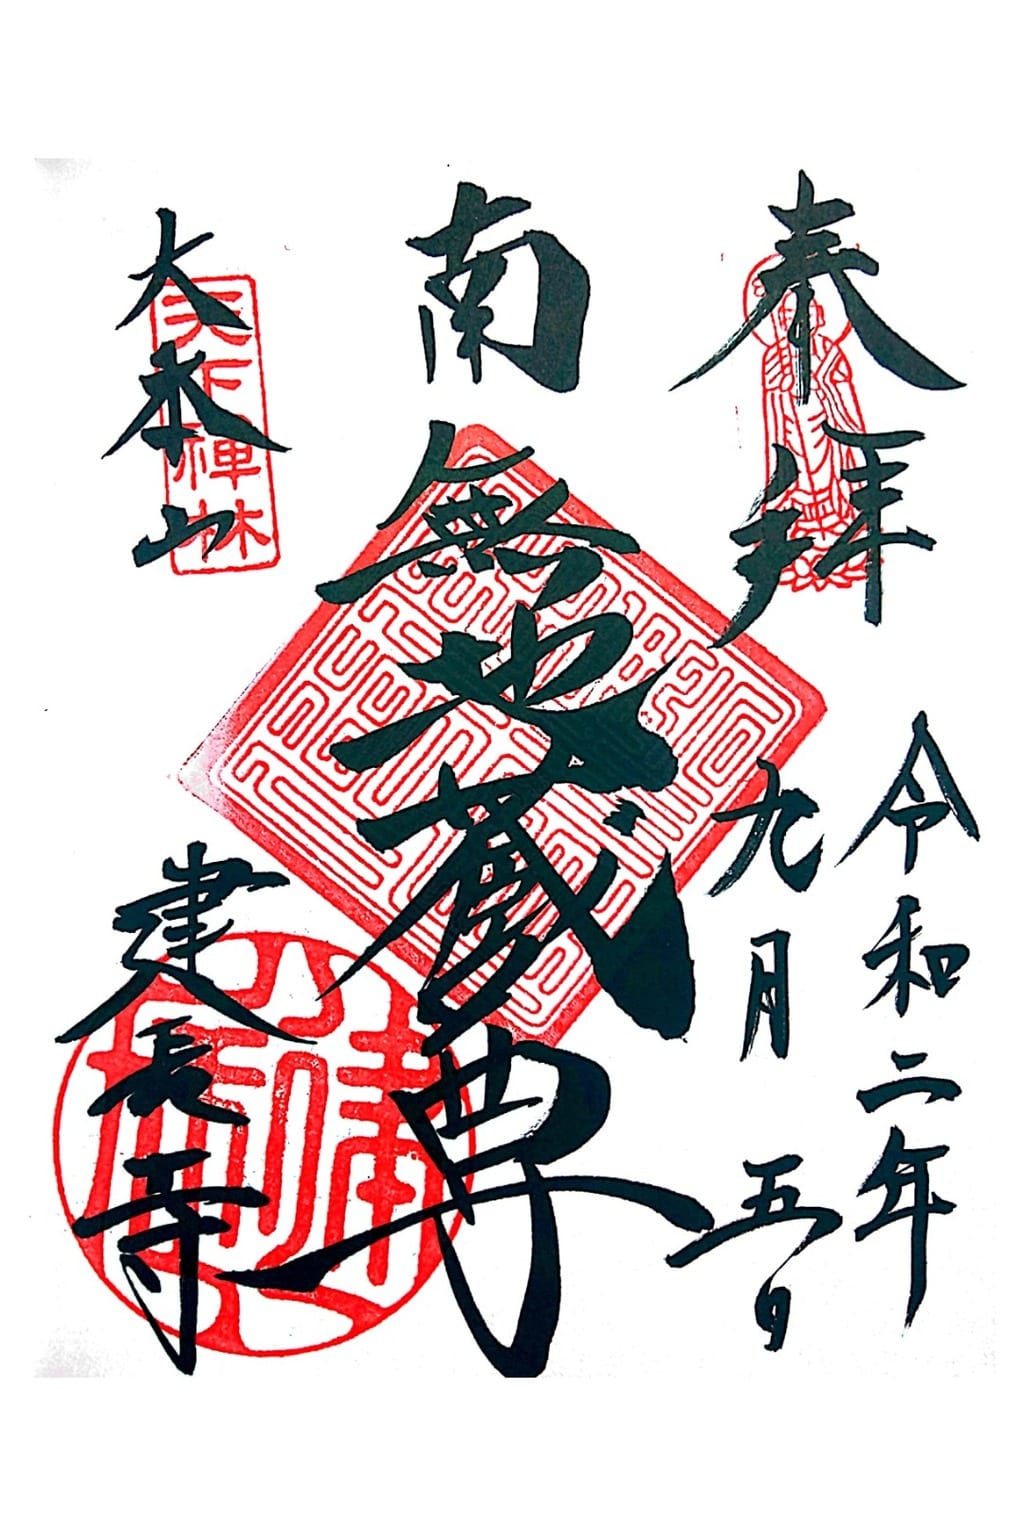 奉拝
令和二年
九月五日
南無地蔵尊
大本山
建長寺
天下禅林